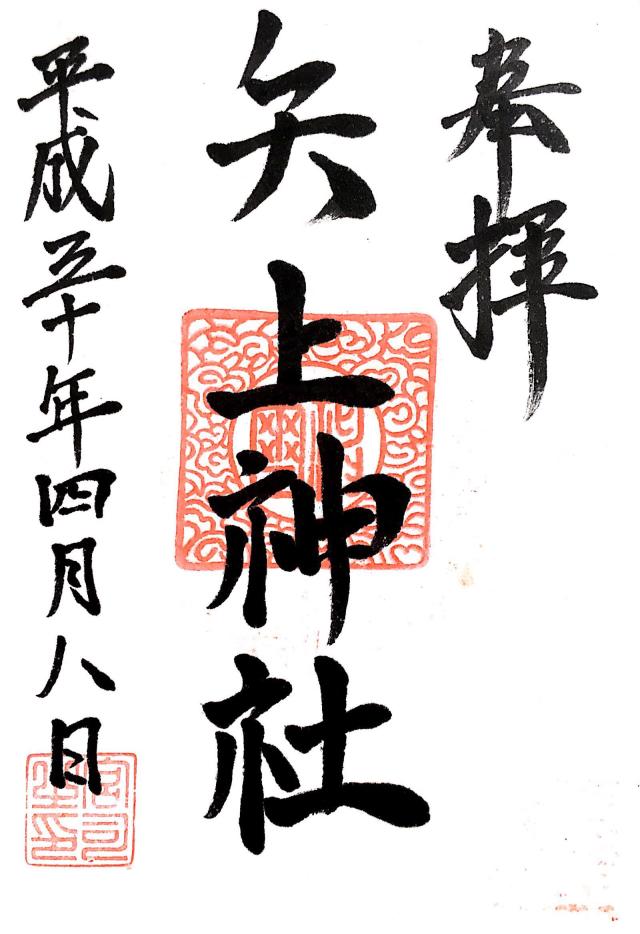 奉拝
矢上神社
平成三十年四月八日